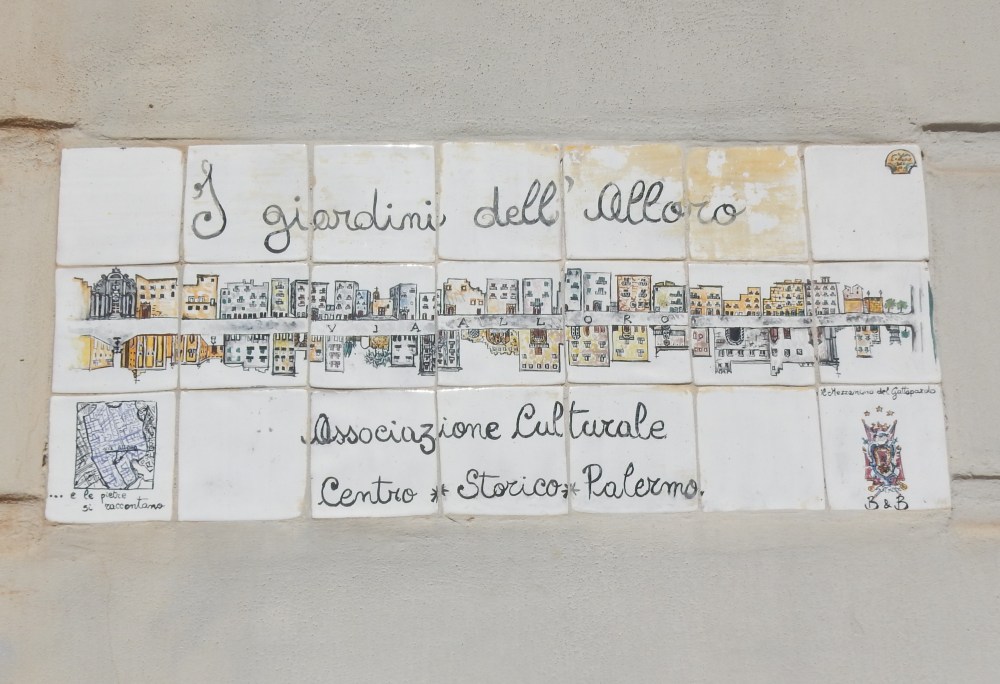 I giardini dell'Alloro
VIA ALLORO
Il Mezzanino del Gattopardo
Associazione Culturale
Centro * Storico * Palermo.
... e le pietre
si raccontano
B & B